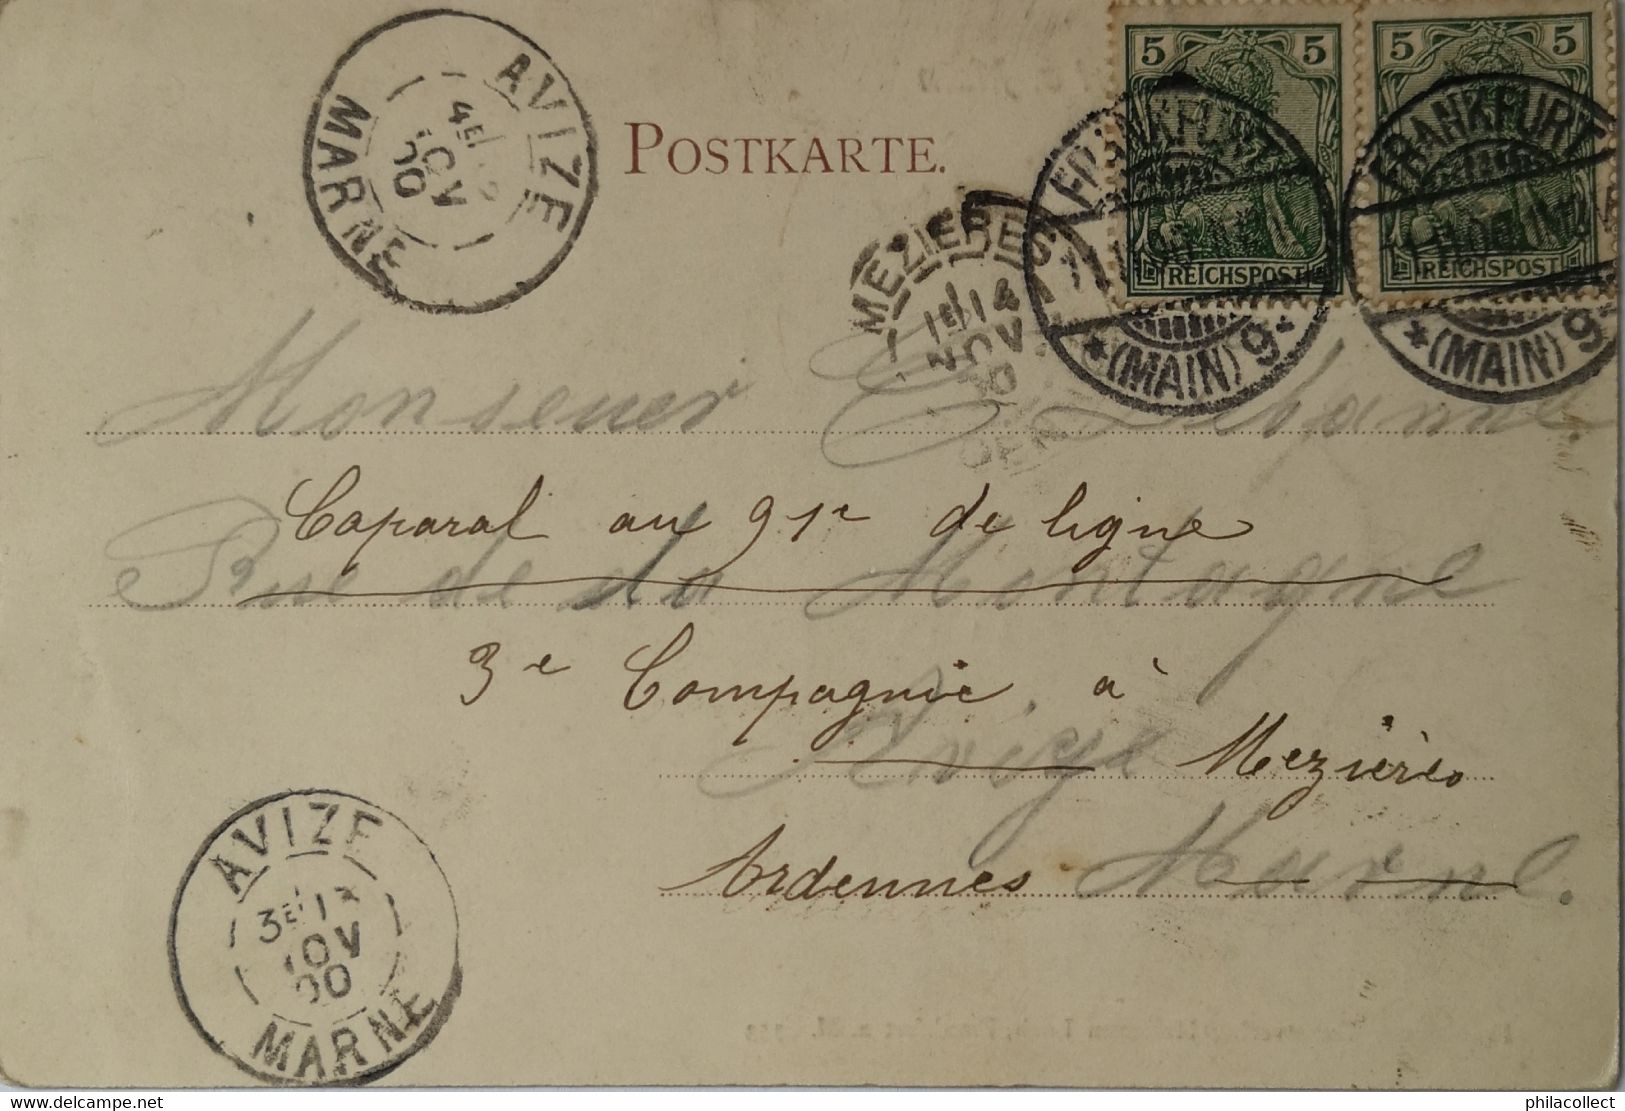 5 5 5 5
REICHSPOST REICHSPOST
FRANKFURT (MAIN) 9
FRANKFURT (MAIN) 9
AVIZE
4E
MARNE
POSTKARTE.
MEZIERES
1E 14
NOV
Monseuer
Caparal au 91e de ligne
Rue de la Montagne
3e Compagnie à
Avize
Mezières
Ardennes
Marne.
AVIZE
3E
MARNE
philacollect
http://www.delcampe.net